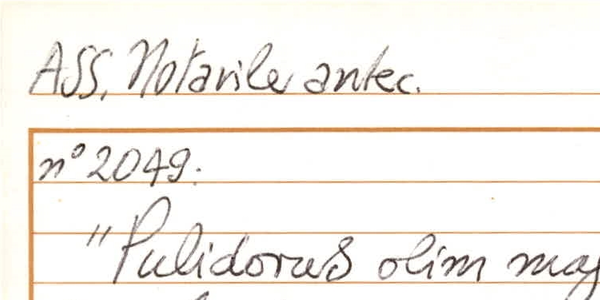 ASS. Notarile antec.
nº 2049.
"Pulidorus olim mag